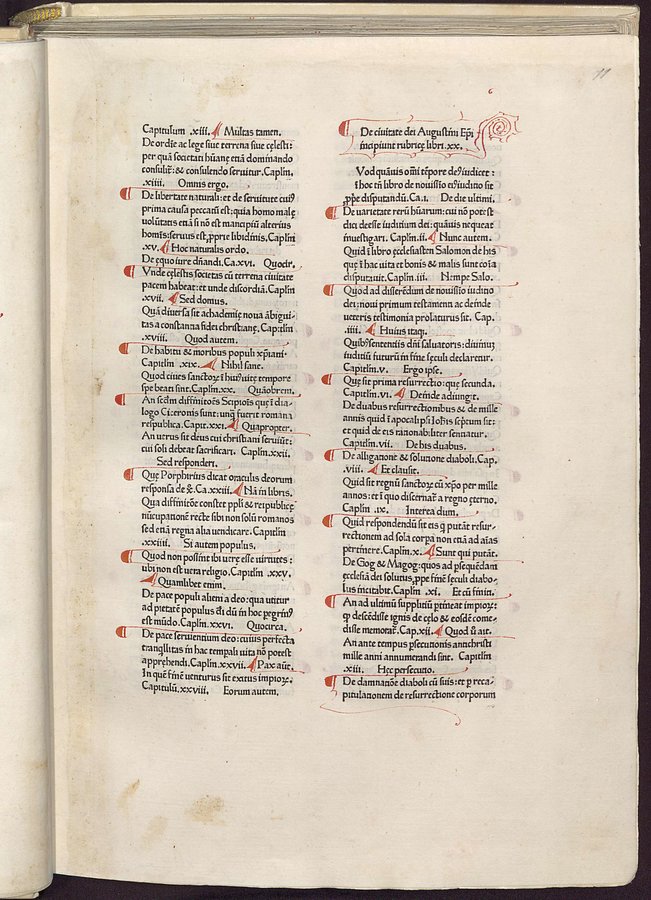 11
Capitulum .xiii. Multas tamen.
De ordīe ac lege siue terrena siue cęlesti:
per quā societati hūanę etiā dominando
consulit̄: & consulendo seruitur. Caplm̄
.xiiii. Omnis ergo.
De libertate naturali: et de seruitute cui⁹
prima causa peccatū est: quia homo malę
volūtatis etiā si nō est mancipiū alterius
homīs: seruus est, ꝓprię libidinis. Caplm̄
.xv. Hoc naturalis ordo.
De equo iure dn̄andi. Ca. xvi. Quocir.
Vnde cęlestis societas cū terrena ciuitate
pacem habeat: et unde discordiā. Caplm̄
.xvii. Sed domus.
Quā diuersa sit achademię noua ābigui-
tas a constantia fidei christianę. Cap:tlm̄
.xviii. Quod autem.
De habitu & moribus populi xp̄iani.
Capitlm̄ .xix. Nihil sane.
Quod ciues sanctoꝝ ī hui⁹ uitę tempore
spe beati sint. Caplm̄. xx. Quāobrem.
An scd̄m diffinitōēs Scipiōis quę ī dia-
logo Ciceronis sunt: unq̄ fuerit romana
respublica. Capit. xxi. Quapropter.
An uerus sit deus cui christiani seruiūt:
cui soli debeat sacrificari. Caplm̄. xxii.
Sed responderi.
Que Porphirius dicat oraculis deorum
responsa de xp̄o. Ca. xxiii. Nā in libris.
Qua diffinitiōe constet ppl̄i & reipublicę
nūcupationē recte sibi non solū romanos
sed etiā regna alia uendicare. Capitlm̄
.xxiiii. Si autem populus.
Quod non possint ibi uerę esse uirtutes:
ubi non est uera religio. Capitlm̄ .xxv.
Quamlibet enim.
De pace populi alieni a deo: qua utitur
ad pietatē populus dei dū in hoc pegrin⁹
est mūdo. Caplm̄. xxvi. Quocirca.
De pace seruientium deo: cuius perfecta
tranq̄llitas in hac tempali uita nō potest
apprehendi. Caplm̄. xxvii. Pax aūt.
In quē finē venturus sit exitus impioꝝ.
Capitulū. xxviii. Eorum autem.
De ciuitate dei Augustini Epī
incipiunt rubricę libri .xx.
Vod quāuis om̄i tēpore de⁹ iudicet:
hoc tn̄ ī libro de nouissīo ei⁹ iuditio sit
ꝓpe disputandū. Ca. i. De die ultimi.
De varietate rerū hūarum: cui nō potest
dici deesse iuditium dei: quāuis nequeat
inuestigari. Caplm̄. ii. Nunc autem.
Quid ī libro ecclesiasten Salomon de his
quę ī hac uita et bonis & malis sunt cōīa
disputauit. Caplm̄. iii. Nempe Salo.
Quod ad disserēdum de nouissīo iuditio
dei: noui primum testamenti ac deinde
ueteris testimonia prolaturus sit. Cap.
.iiii. Huius itaq;.
Quib⁹ sententiis dn̄i saluatoris: diuinū
iuditiū futurū in fine sęculi declaretur.
Capitlm̄. v. Ergo ipse.
Que sit prima resurrectio: que secunda.
Capitlm̄. vi. Deinde adiungit.
De duabus resurrectionibus & de mille
annis quid ī apocalīpsi Ioh̄is scp̄tum sit:
et quid de eis rationabiliter sentiatur.
Capitlm̄. vii. De his duabus.
De alligatione & solutione diaboli. Cap.
.viii. Et clausit.
Quid sit regnū sanctoꝝ cū xp̄o per mille
annos: et ī quo discernat̄ a regno ęterno.
Caplm̄ .ix. Interea dum.
Quid respondendū sit eis q̄ putāt resur-
rectionem ad sola corpa non etiā ad aīas
pertinere. Caplm̄. x. Sunt qui putāt.
De Gog & Magog: quos ad psequēdam
ecclesiā dei solutus, ppe finē sęculi diabo-
lus incitabit. Capitlm̄ .xi. Et cū finiti.
An ad ultimū suppliciū ptineat impioꝝ:
ꝙ descēdisse ignis de cęlo & eosdē come-
disse memorat̄. Cap. xii. Quod ū ait.
An ante tempus psecutionis antichristi
mille anni annumerandi sint. Capitlm̄
.xiii. Hęc persecutio.
De damnatiōe diaboli cū suis: et p reca-
pitulationem de resurrectione corporum